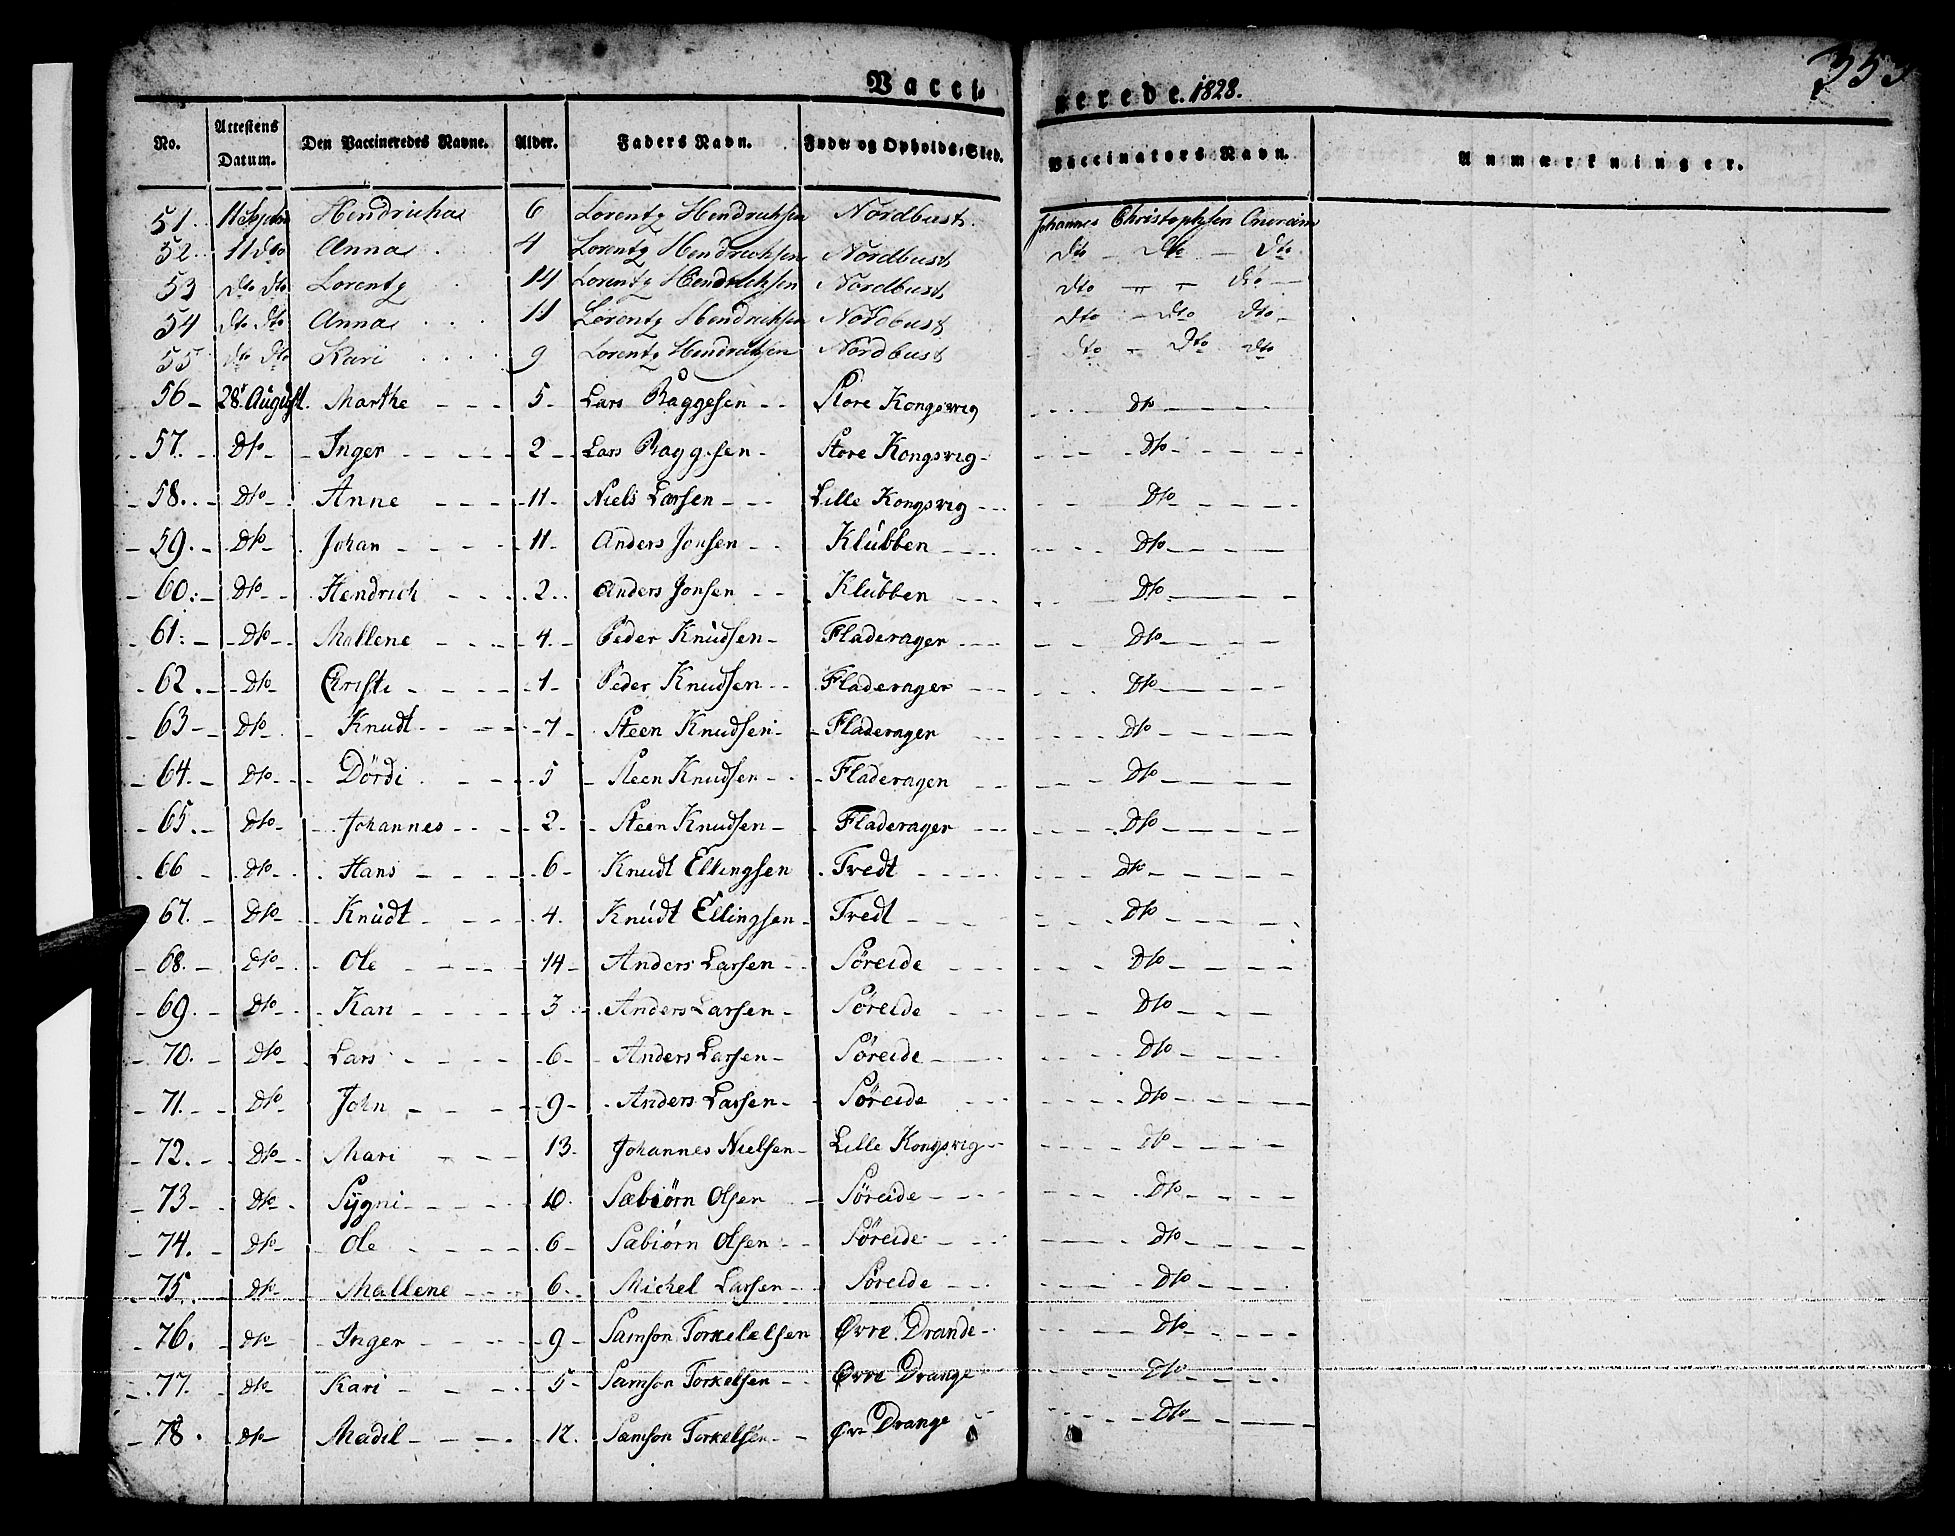 Vacci nerede. 1828. 353
No. Attestens Datum. Den Vaccineredes Navne. Alder. Faders Navn. Føde- og Opholds-Sted. Vaccinators Navn. Anmærkninger.
51. 11 Septbr Hendricha 6 Lorentz Hendrichsen Nordbust. Johannes Christophersen
52. 11 Dto Anna 4 Lorentz Hendrichsen Nordbust Dto Dto Dto
53 Dto Dto Lorentz 14 Lorentz Hendrichsen Nordbust Dto " " Dto
54 Dto Dto Anna 11 Lorentz Hendrichsen Nordbust Dto Dto Dto
55 Dto Dto Kari 9 Lorentz Hendrichsen Nordbust Dto Dto Dto
56 28. August Marthe 5 Lars Baggesen Store Kongsvig Dto
57. Dto Inger 2 Lars Baggesen Store Kongsvig Dto
58. Dto Anne 11 Niels Larsen Lille Kongsvig Dto
59. Dto Johan 11 Anders Jonsen Klubben Dto
60. Dto Hendrich 2 Anders Jonsen Klubben Dto
61. Dto Mallene 4 Peder Knudsen Fladerager Dto
62. Dto Christi 1 Peder Knudsen Fladerager Dto
63 Dto Knudt 7 Steen Knudsen Fladerager Dto
64. Dto Dördi 5 Steen Knudsen Fladeragen Dto
65. Dto Johannes 2 Steen Knudsen Fladerager Dto
66 Dto Hans 6 Knudt Ellingsen Tredt Dto
67. Dto Knudt 4. Knudt Ellingsen Tredt Dto
68. Dto Ole 14 Anders Larsen Søreide Dto
69. Dto Kari 3 Anders Larsen Søreide Dto
70. Dto Lars 6 Anders Larsen Søreide Dto
71. Dto John 9 Anders Larsen Søreide Dto
72. Dto Mari 13 Johannes Nielsen Lille Kongsvig Dto
73 Dto Sygni 10. Sæbiørn Olsen Søreide Dto
74. Dto Ole 6 Sabiørn Olsen Søreide Dto
75. Dto Mallene 6. Michel Larsen Søreide Dto
76. Dto Inger 9 Samson Torkelelsen Øvre Drande Dto
77. Dto Kari 5 Samson Torkelsen Øvre Drange Dto
78. Dto Madil 12. Samson Torkelsen Øvr Drange Dto